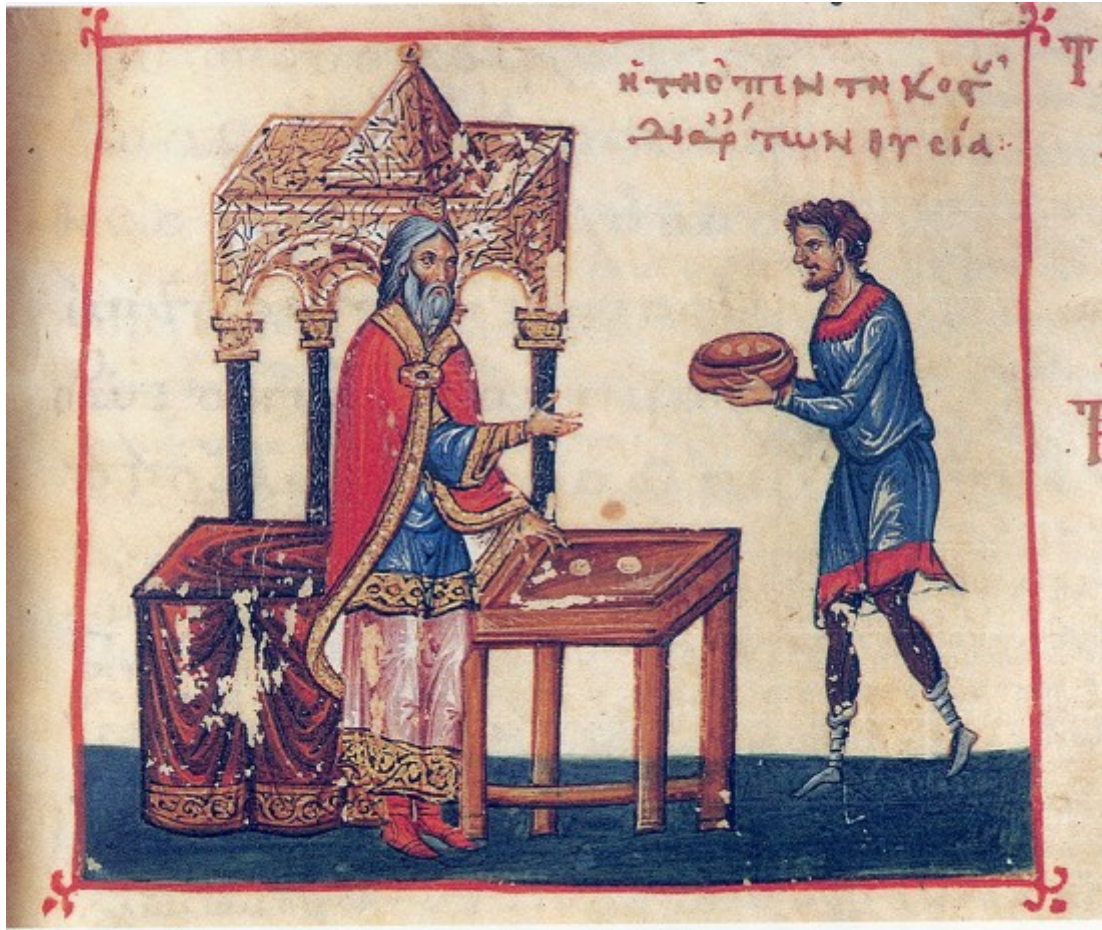 ἡ τῆς πιντηκοσ
δι ἄρτων θυσία
Τ